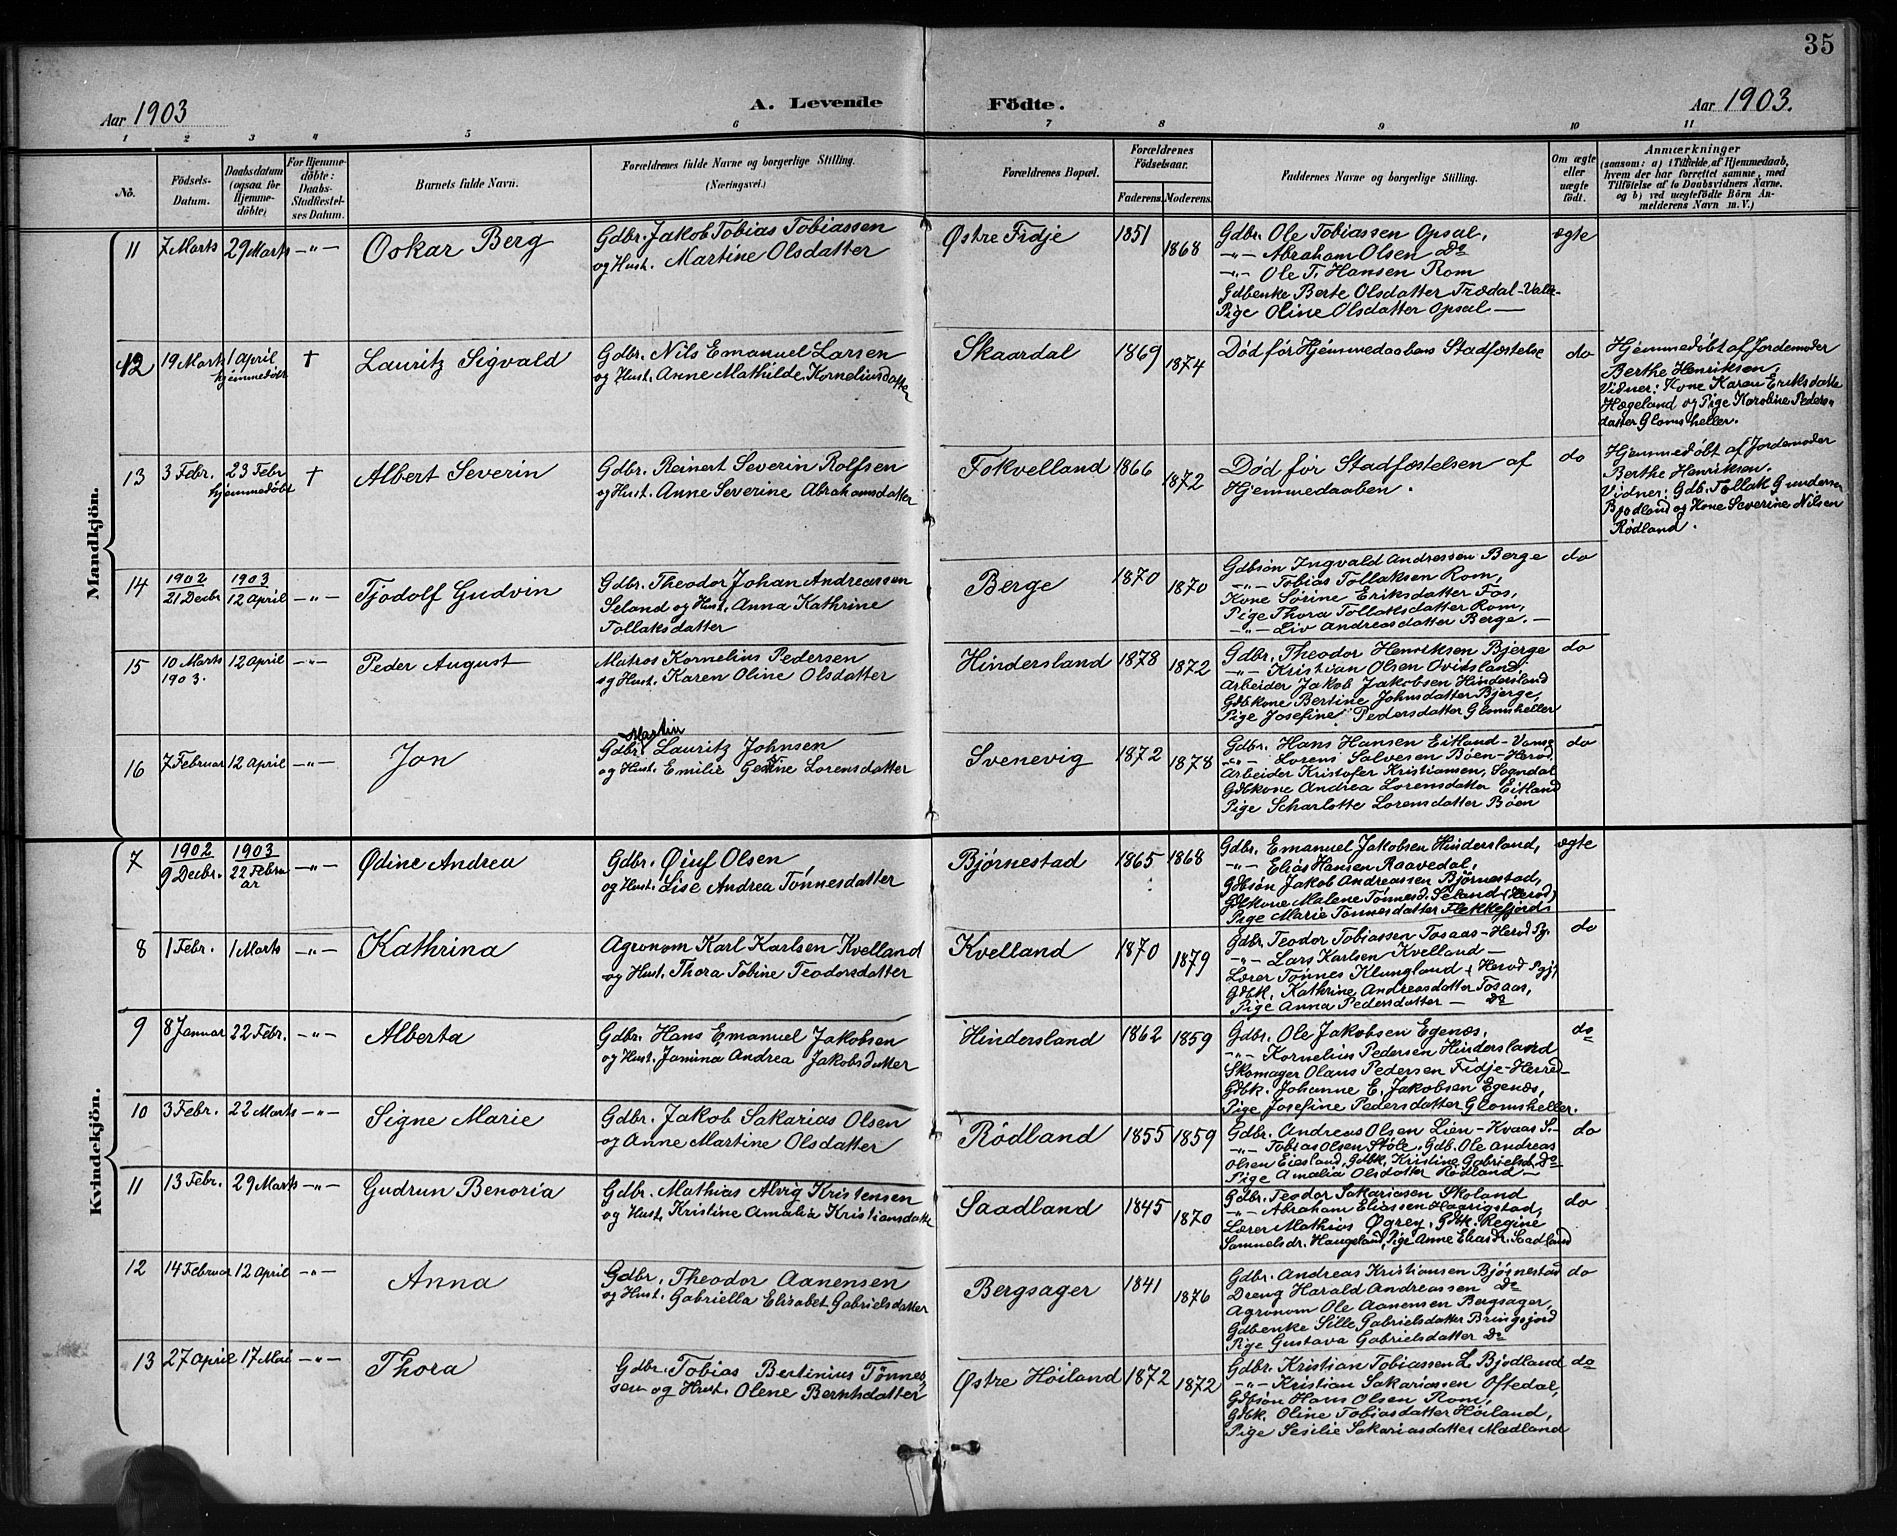 35
Aar 1903
A. Levende Födte.
Aar 1903.
1 2 3 4 5 6 7 8 9 10 11
No.
Födsels-
Datum.
Daabsdatum
(ogsaa for
Hjemme-
döbte)
For Hjemme-
döbte:
Daabs-
Stadfæstel-
ses Datum.
Barnets fulde Navn.
Forældrenes fulde Navne og borgerlige Stilling.
(Næringsvei.)
Forældrenes Bopæl.
Forældrenes
Födselsaar.
Faderens. Moderens.
Faddernes Navne og borgerlige Stilling.
Om ægte
eller
uægte
födt.
Anmærkninger
(saasom: a) i Tilfælde af Hjemmedaab,
hvem der har forrettet samme, med
Tilföielse af to Daabsvidners Navne.
og b) ved uægtefödte Börn An-
melderens Navn m. V.)
Mandkjön.
11 7 Marts 29 Marts -"- Oskar Berg
Gdbr. Jakob Tobias Tobiassen
og Hust. Martine Olsdatter
Østre Fidje 1851 1868
Gdbr. Ole Tobiassen Opsal,
-"- Abraham Olsen do
-"- Ole T. Hansen Rom
Gdbenke Berte Olsdatter Trædal-Valse-
Pige Oline Olsdatter Opsal —
ægte
12 19 Marts 1 April
hjemmedøbt
† Lauritz Sigvald
Gdbr. Nils Emanuel Larsen
og Hust. Anne Mathilde Korneliusdatter
Skaardal 1869 1874
Død før Hjemmedaabens Stadfæstelse
do
Hjemmedøbt af Jordemoder
Berthe Henriksen,
Vidner: Kone Karen Eriksdatter
Hægeland og Pige Karoline Peders-
datter Glomsheller.
13 3 Febr. 23 Febr
hjemmedøbt
† Albert Severin
Gdbr. Reinert Severin Rolfsen
og Hust. Anne Severine Abrahamsdatter
Fokvelland 1866 1872
Død før Stadfæstelsen af
Hjemmedaaben.
do
Hjemmedøbt af Jordemoder
Berthe Henriksen.
Vidner: Gdb. Tollak Gundersen
Bjodland og Kone Severine Nilsen
Rødland.
14 1902
21 Decbr
1903
12 April
-"- Tjodolf Gudvin
Gdbr. Theodor Johan Andreassen
Seland og Hust. Anna Kathrine
Tollaksdatter
Berge 1870 1870
Gdbsøn Ingvald Andressen Berge
-"- Tobias Tollaksen Rom,
Kone Sørine Eriksdatter Fos,
Pige Thora Tollaksdatter Rom,
-"- Liv Andreasdatter Berge. —
do
15 10 Marts
1903.
12 April -"- Peder August
Matros Kornelius Pedersen
og Hust. Karen Oline Olsdatter
Hindersland 1878 1872
Gdbr. Theodor Henriksen Bjerge
-"- Kristian Olsen Ovidsland,
Arbeider Jakob Jakobsen Hindersland
Gdbkone Bertine Johnsdatter Bjerge,
Pige Josefine Pedersdatter Glomsheller
do
16 7 Februar 12 April -"- Jon
Martin
Gdbr. Lauritz Johnsen
og Hust. Emilie Gestine Lorensdatter
Svenevig 1872 1878
Gdbr. Hans Hansen Eitland-Vanse
-"- Lorens Salvesen Bøen-Herad.
Arbeider Kristofer Kristiansen, Sogndal
Gdbkone Andrea Lorensdatter Eitland
Pige Scharlotte Lorensdatter Bøen
do
Kvindekjön.
7 1902
9 Decbr.
1903
22 Febru
ar
-"- Ødine Andrea
Gdbr. Øiuf Olsen,
og Hust. Lise Andrea Tønnesdatter
Bjørnestad 1865 1868
Gdbr. Emanuel Jakobsen Hindersland,
-"- Elias Hansen Raavedal,
Gdbsøn Jakob Andreassen Bjørnestad,
Gdbkone Malene Tønnesd. Seland (Herad)
Pige Marie Tønnesdatter Flekkefjord.
ægte
8 1 Febr. 1 Marts -"- Kathrina
Agronom Karl Karlsen Kvelland
og Hust. Thora Tobine Teodorsdatter
Kvelland 1870 1879
Gdbr. Teodor Tobiassen Tosaas-Herad Pgj.
-"- Lars Karlsen Kvelland —
Lærer Tønnes Klungland (Herad Pgj.)
Gdbk. Kathrine Andreasdatter Tosaas,
Pige Anna Pedersdatter — do
do
9 8 Januar 22 Febr. -"- Alberta
Gdbr. Hans Emanuel Jakobsen
og Hust. Jamina Andrea Jakobsdatter
Hindersland 1862 1859
Gdbr. Ole Jakobsen Egenæs.
-"- Kornelius Pedersen Hindersland
Skomager Olaus Pedersen Fidje-Herred-
Gdbk. Johanne E. Jakobsen Egenæs,
Pige Josefine Pedersdatter Glomsheller.
do
10 3 Febr. 22 Marts -"- Signe Marie
Gdbr. Jakob Sakarias Olsen
og Anne Martine Olsdatter
Rødland 1855 1859
Gdbr. Andreas Olsen Lien-Kvaas S.-
-"- Tobias Olsen Støle, Gdb. Ole Andreas
Olsen Eiesland, Gdbk. Kristine Gabrielsd. do
Pige Amalia Olsdatter Rødland —
do
11 13 Febr. 29 Marts -"- Gudrun Benoria
Gdbr. Mathias Alvig Kristensen
og Hust. Kristine Amalia Kristiansdatte
Saadland 1845 1870
Gdbr. Teodor Sakariasen Skoland
-"- Abraham Eliassen Haarigstad,
Lærer Mathias Øgrey. Gdbk. Regine
Samuelsdr. Haugeland, Pige Anne Eliasdr. Saadland
do
12 14 Februar 12 April -"- Anna
Gdbr. Theodor Aanensen
og Hust. Gabriella Elisabet Gabrielsdatter
Bergsager 1841 1876
Gdbr. Andreas Kristiansen Bjørnestad
Dreng Harald Andreassen do
Agronom Ole Aanensen Bergsager,
Gdbenke Sille Gabrielsdatter Bringsjord
Pige Gustava Gabrielsdatter do
do
13 27 April 17 Mai -"- Thora
Gdbr. Tobias Bertinius Tønnes-
sen og Hust. Olene Berntsdatter
Østre Høiland 1872 1872
Gdbr. Kristian Tobiassen L. Bjodland
-"- Kristian Sakariassen Oftedal,
Gdbsøn Hans Olsen Rom,
Gdbk. Oline Tobiasdatter Høiland,
Pige Sesilie Sakariasdatter Madland
do